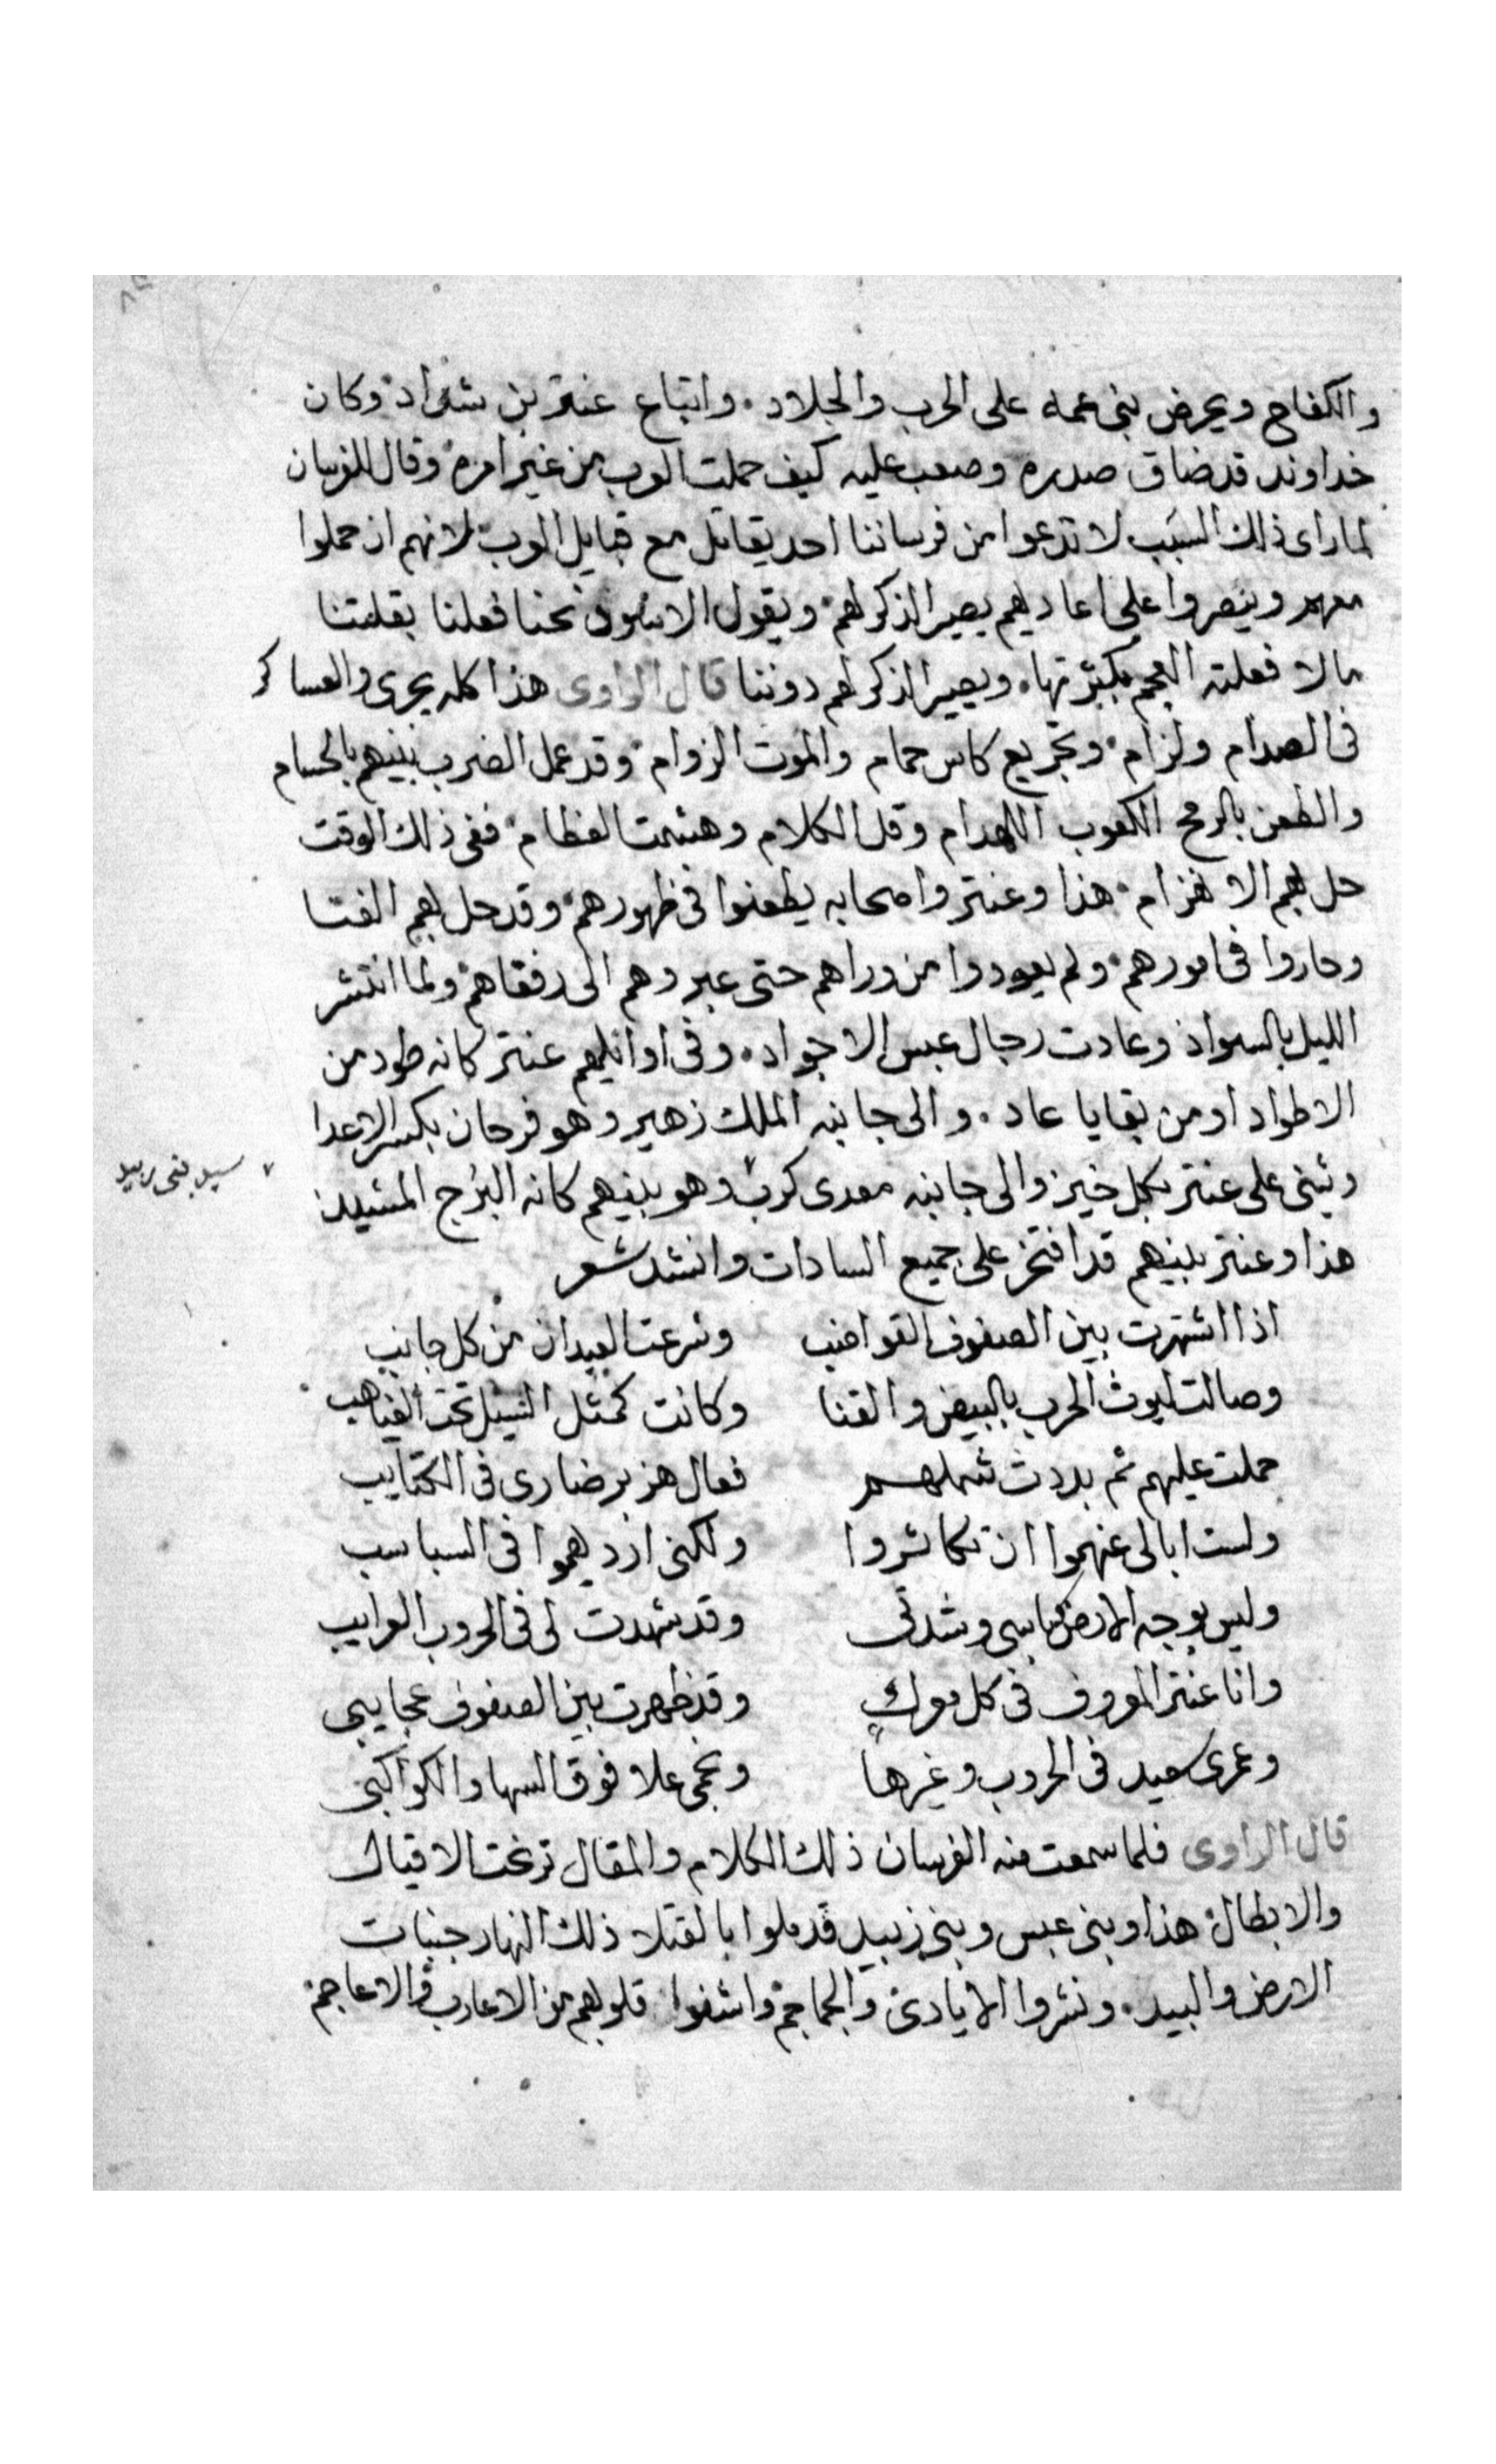 والكفاح ويحرض بنى عمه على الحرب والجلاد. واتباع عنتر بن شداد وكان
خداوند قد ضاق صدره وصعب عليه كيف حملت العرب من غير امره وقال للفرسان
لما راى ذلك السبب لا تدعوا من فرساننا احد يقاتل مع قبايل العرب لانهم ان حملوا
معهم وينصروا على اعاديهم يصير الذكر لهم ويقول الاسود نحنا فعلنا بقلتنا
مالا فعلته العجم بكثرتها. ويصير الذكر لهم دوننا قال الراوى هذا كله يجرى والعساكر
فى الصدام ولزام وتجريع كاس حمام والموت الزوام وقد عمل الضرب بينهم بالحسام
والطعن بالرمح الكعوب اللهدام وقل الكلام وهشمت العظام ففى ذلك الوقت
حل بهم الا هزام هذا وعنتر واصحابه يطعنوا فى ظهورهم وقد حل بهم الفنا
وحاروا فى امورهم ولم يعودوا من وراهم حتى عبروهم الى رفقاهم ولما انتشر
الليل بالسواد وعادت رجال عبس الاجواد. وفى اوائلهم عنتر كانه طود من
الاطواد او من بقايا عاد. والى جانبه الملك زهير وهو فرحان بكسر الاعدا
ويثنى على عنتر بكل خير والى جانبه معدى كرب وهو بينهم كانه البرج المشيد
سيد بنى زبيد
هذا وعنتر بينهم قد افتخر على جميع السادات وانشد شعر
اذا اشتهرت بين الصفوف القواضب وشرعت العيدان من كل جانب
وصالت ليوث الحرب بالبيض والقنا وكانت كمثل السيل تحت الغياهب
حملت عليهم ثم بددت شملهم فعال هزبر ضارى فى الكتايب
ولست ابالى عنهموا ان تكاثروا ولكنى ارديهموا فى السباسب
وليس بوجه الارض كباسى وشدتى وقد شهدت لى فى الحروب العرايب
وانا عنتر المعروف فى كل معرك وقد ظهرت بين الصفوف عجايبى
وعمرى سعيد فى الحروب وغيرها ونجمى علا فوق السها والكواكبى
قال الراوى فلما سمعت منه الفرسان ذلك الكلام والمقال ترنحت الاقيال
والابطال هذا وبنى عبس وبنى زبيد قد ملوا بالقتلا ذلك النهار جنبات
الارض والبيد. ونثروا الايادى والجماجم واشفوا قلوبهم من الاعارب والاعاجم